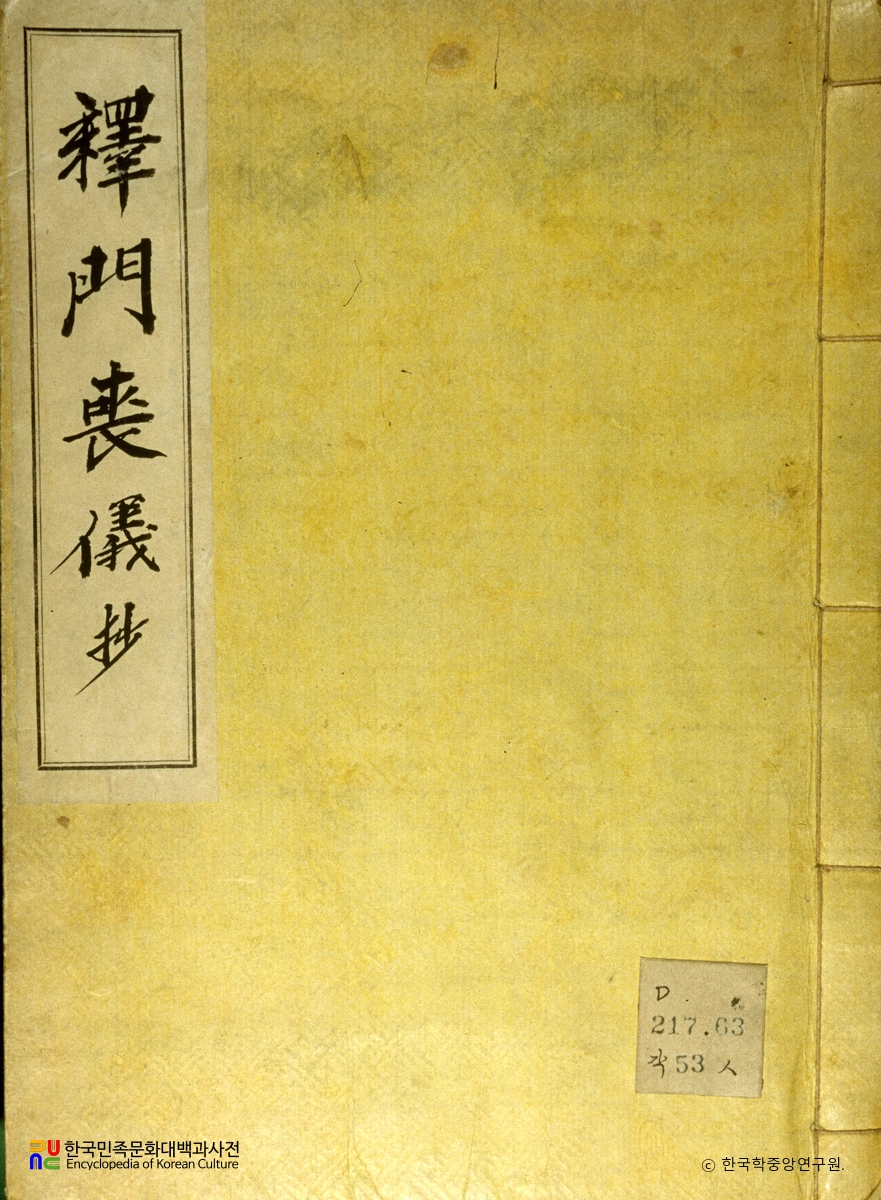 釋門喪儀抄
D
217.63
각53ㅅ
한국민족문화대백과사전
Encyclopedia of Korean Culture
ⓒ 한국학중앙연구원.